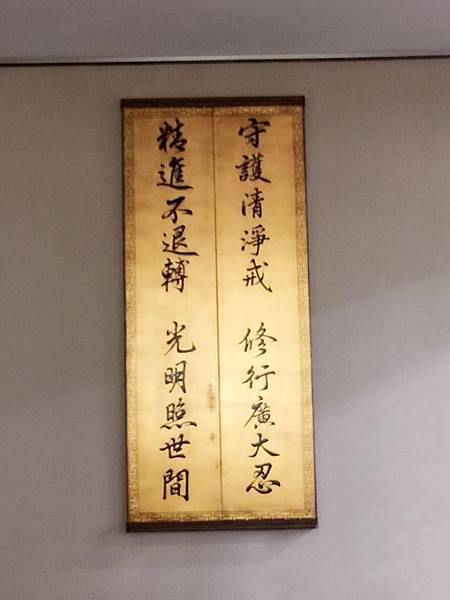 守護清淨戒 修行廣大忍
精進不退轉 光明照世間